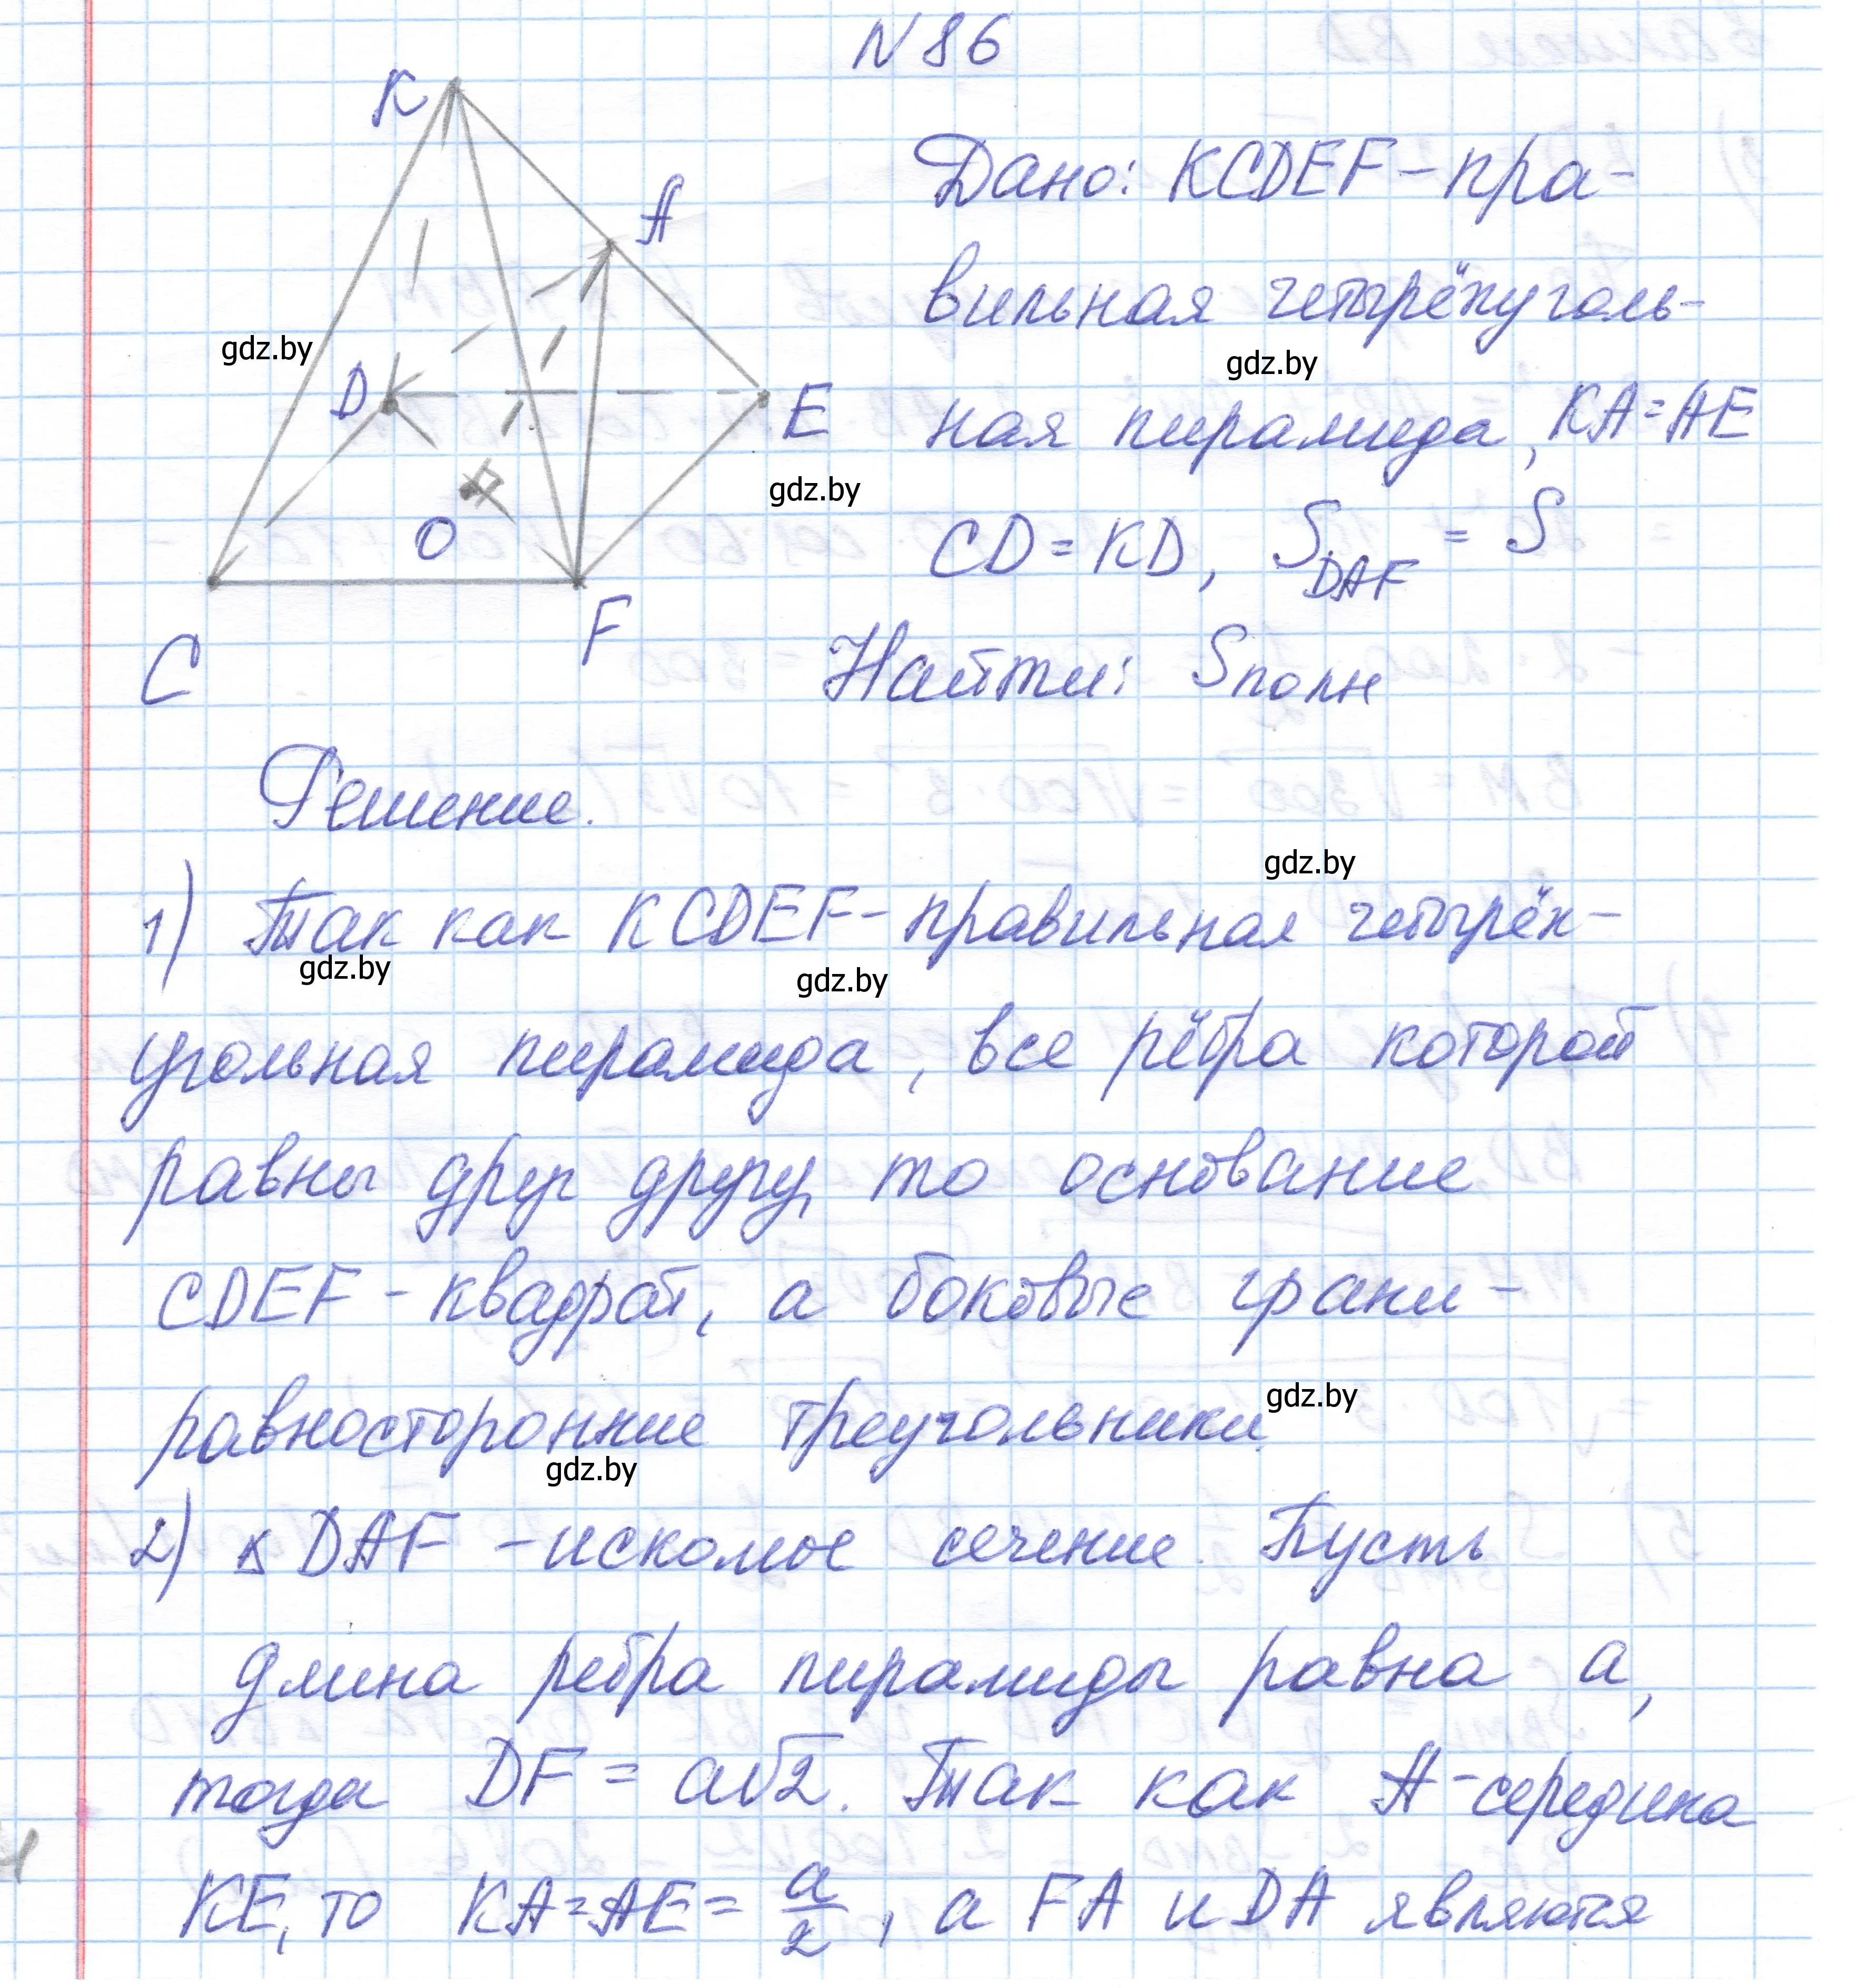 N 86
K
A
D
E
O
C
F
Дано: KCDEF - пра-
вильная четырёхуголь-
ная пирамида, KA = AE
CD = KD, S DAF = S
Найти: Sполн
Решение.
1) Так как KCDEF - правильная четырёх-
угольная пирамида, все рёбра которой
равны друг другу, то основание
CDEF - квадрат, а боковые грани -
равносторонние треугольники.
2) △ DAF - искомое сечение. Пусть
длина ребра пирамиды равна a,
тогда DF = a√2. Так как A - середина
KE, то KA = AE = a/2, а FA и DA являются
gdz.by
gdz.by
gdz.by
gdz.by
gdz.by
gdz.by
gdz.by
gdz.by